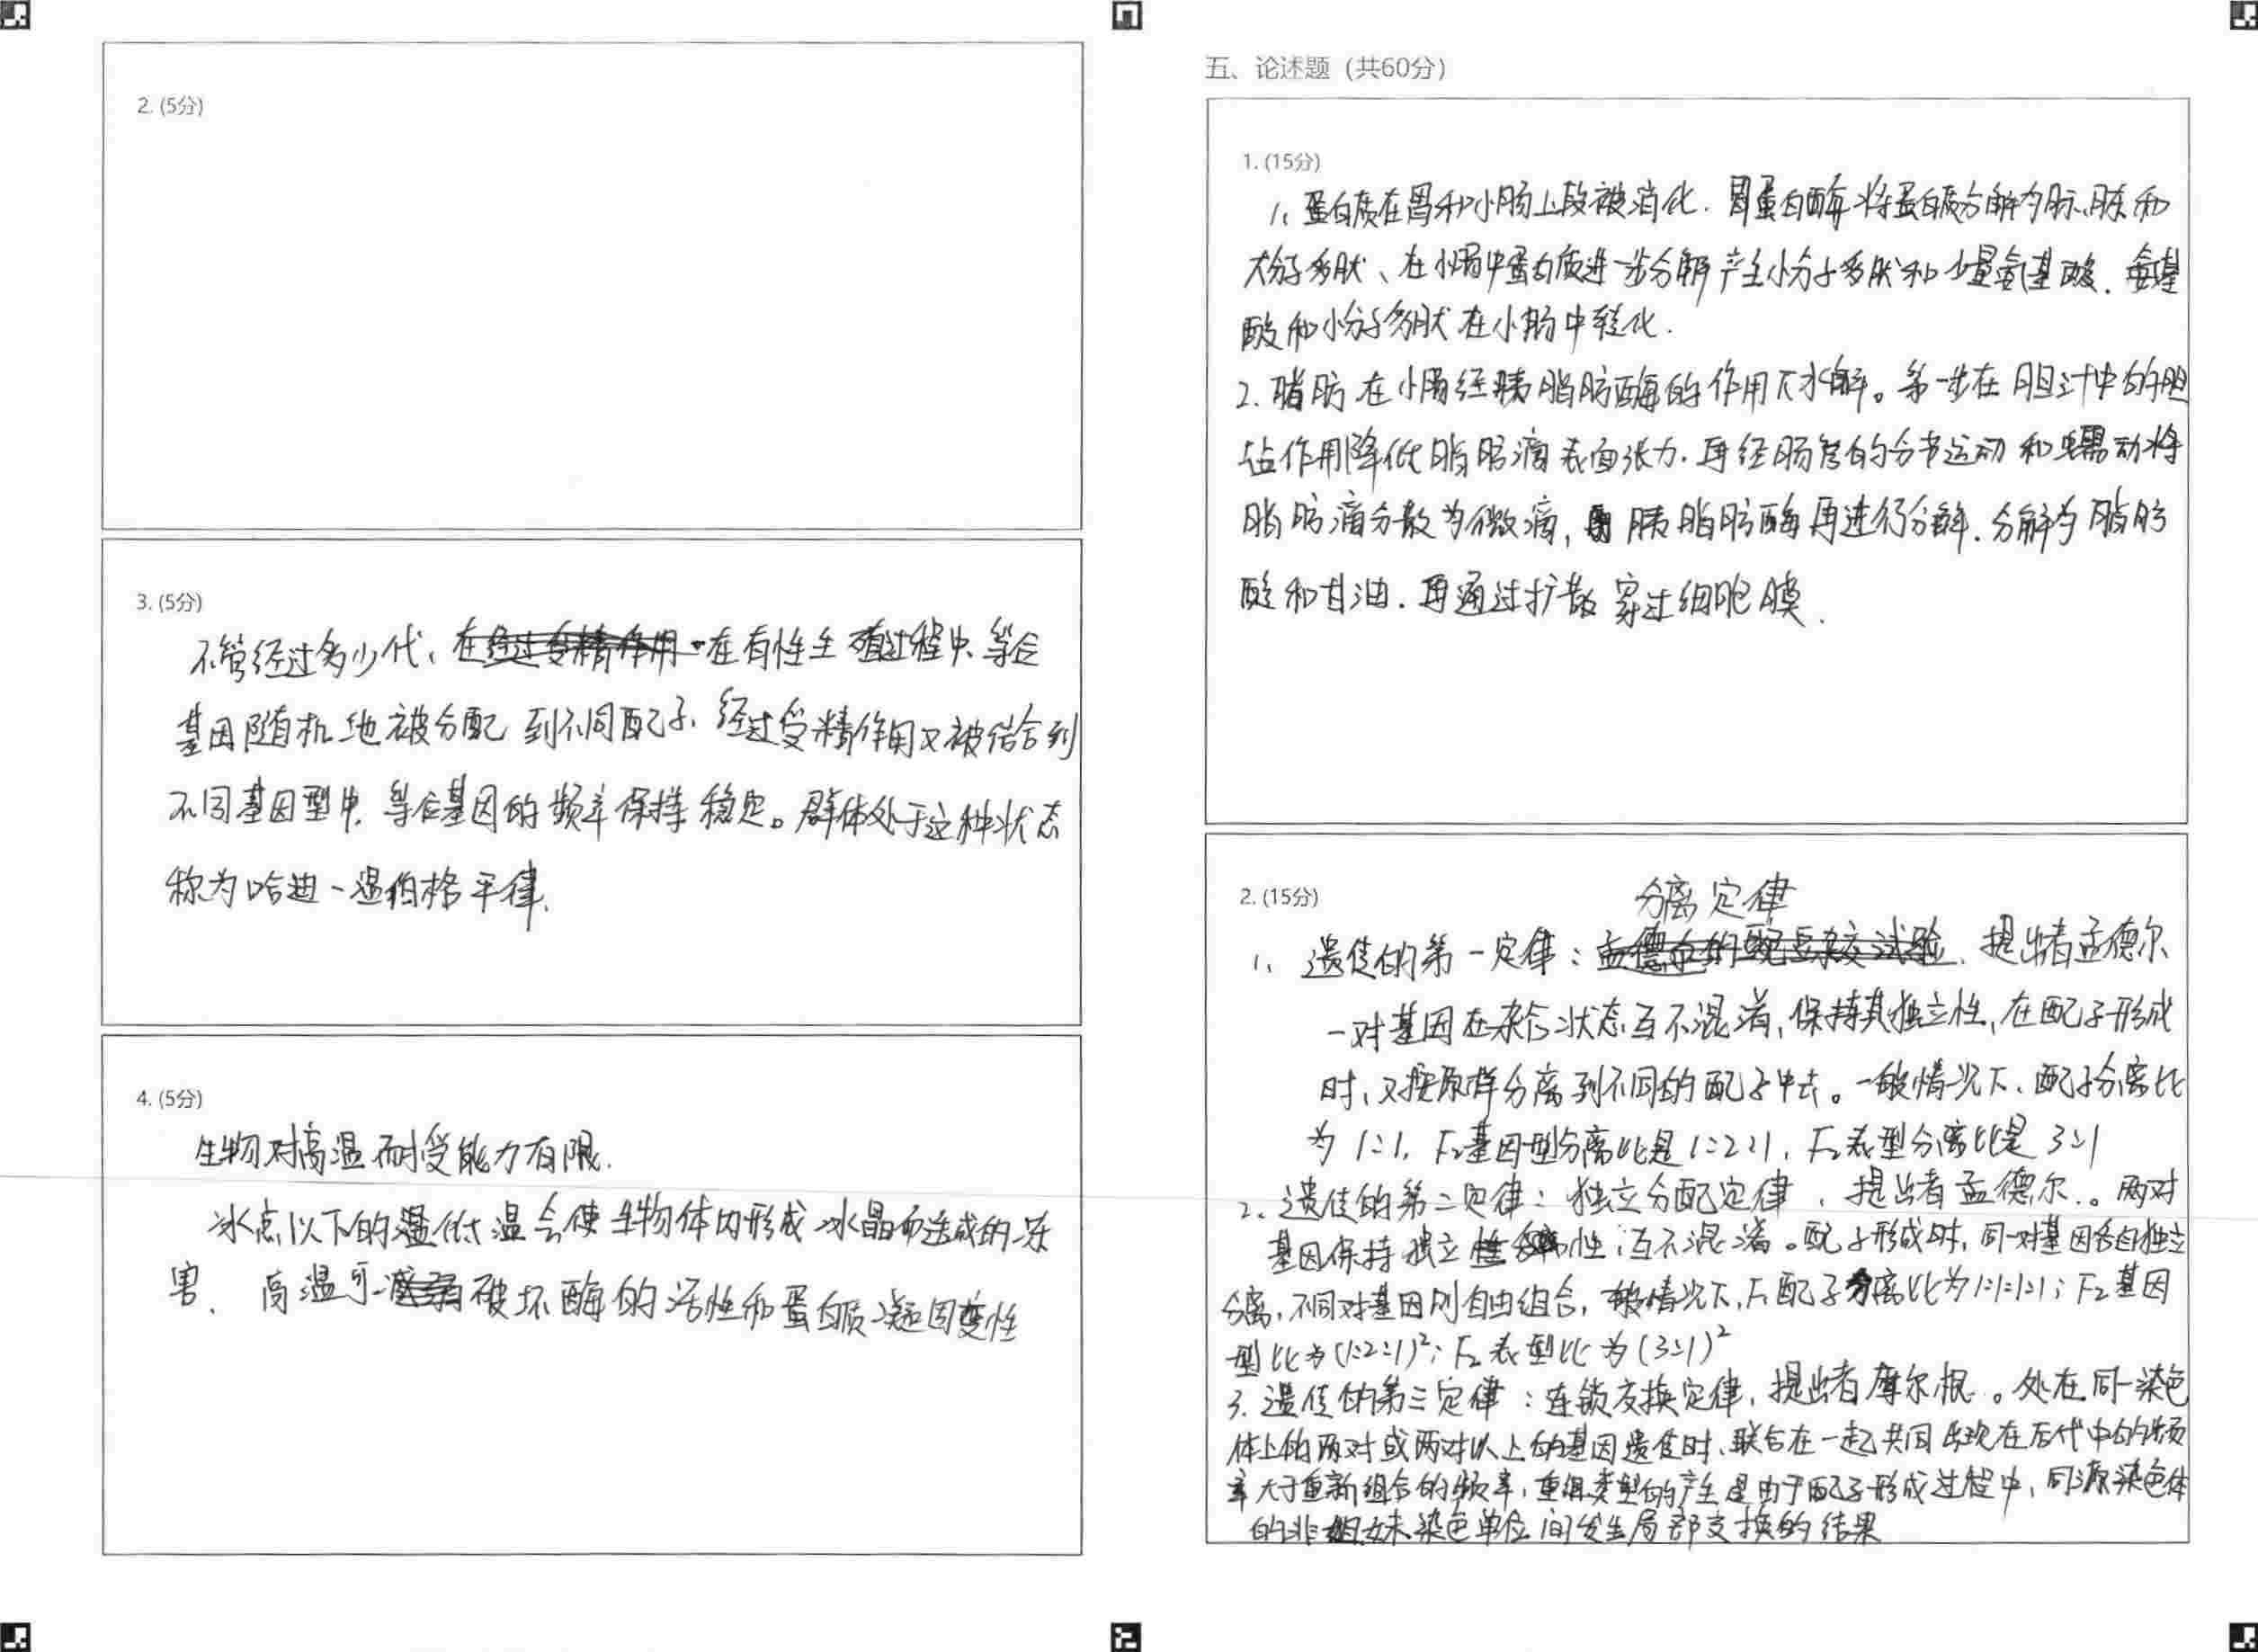 2. (5分)
3. (5分)
不管经过多少代、在有性生殖过程中,等合
基因随机地被分配到不同配子,经过受精作用又被结合到
不同基因型中,等合基因的频率保持稳定。群体处于这种状态
称为哈迪-温伯格平律.
4. (5分)
生物对高温耐受能力有限.
冰点以下的低温会使生物体内形成冰晶而造成的冻
害. 高温可破坏酶的活性和蛋白质凝固变性
五、论述题 (共60分)
1. (15分)
1、蛋白质在胃和小肠上段被消化. 胃蛋白酶将蛋白质分解为䏡、胨和
大分子多肽、在小肠中蛋白质进一步分解产生小分子多肽和少量氨基酸. 氨基
酸和小分子多肽在小肠中转化.
2. 脂肪在小肠经胰脂肪酶的作用下水解。第一步在胆汁中的胆
盐作用降低脂肪滴表面张力. 再经肠管的分节运动和蠕动将
脂肪滴分散为微滴, 胰脂肪酶再进行分解. 分解为脂肪
酸和甘油. 再通过扩散穿过细胞膜.
2. (15分)
分离定律
1、遗传的第一定律: 、提出者孟德尔
一对基因在杂合状态互不混淆,保持其独立性,在配子形成
时、又按原样分离到不同的配子中去。一般情况下、配子分离比
为1:1, F₂基因型分离比是1:2:1, F₂表型分离比是3:1
2、遗传的第二定律: 独立分配定律, 提出者孟德尔.。两对
基因保持独立性,互不混淆。配子形成时,同一对基因各自独立
分离,不同对基因则自由组合, 一般情况下,F₁配子分离比为1:1:1:1; F₂基因
型比为(1:2:1)²; F₂表型比为(3:1)²
3. 遗传的第三定律: 连锁交换定律, 提出者摩尔根.。处在同一染色
体上的两对或两对以上的基因遗传时、联合在一起共同出现在后代中的频
率大于重新组合的频率, 重组类型的产生是由于配子形成过程中, 同源染色体
的非姐妹染色单位间发生局部交换的结果